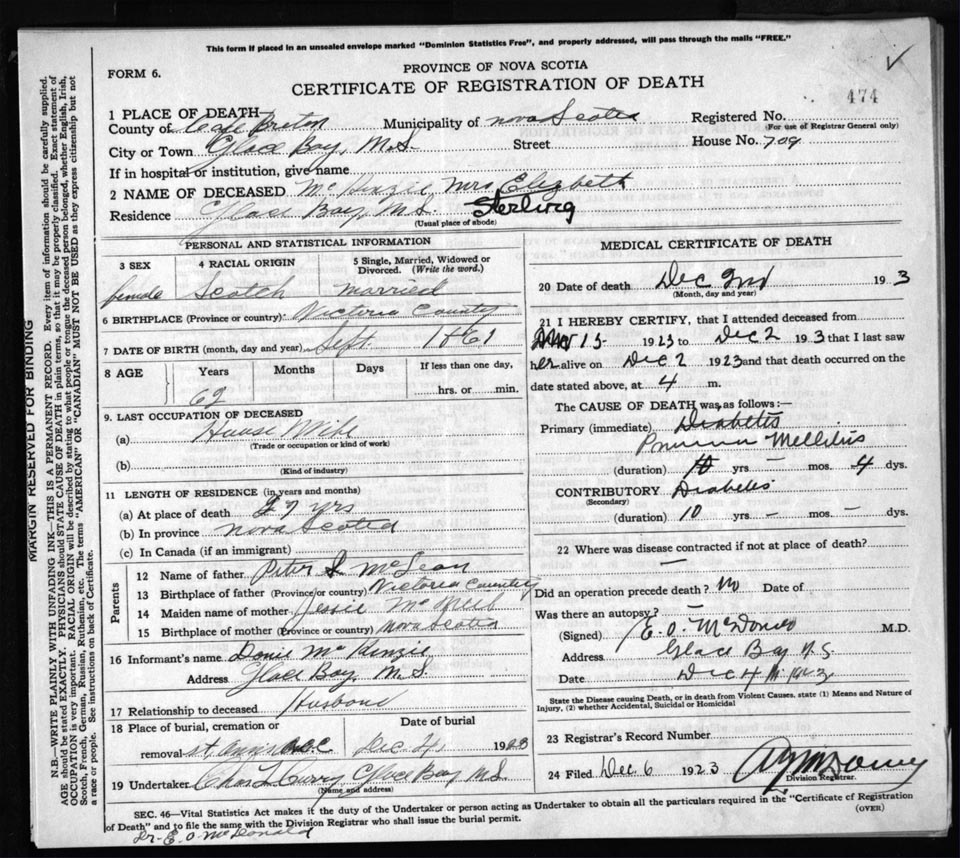 This form if placed in an unsealed envelope marked "Dominion Statistics Free", and properly addressed, will pass through the mails "FREE."
FORM 6.
PROVINCE OF NOVA SCOTIA
CERTIFICATE OF REGISTRATION OF DEATH
474
1 PLACE OF DEATH—
County of Cape Breton Municipality of Nova Scotia Registered No.
(For use of Registrar General only)
City or Town Glace Bay, N.S. Street House No. 709
If in hospital or institution, give name
2 NAME OF DECEASED McKenzie Mrs Elizabeth
Residence Glace Bay, N.S. Sterling
(Usual place of abode)
PERSONAL AND STATISTICAL INFORMATION
3 SEX 4 RACIAL ORIGIN 5 Single, Married, Widowed or Divorced. (Write the word.)
female Scotch married
6 BIRTHPLACE (Province or country): Victoria County
7 DATE OF BIRTH (month, day and year) Sept. 1861
8 AGE Years Months Days If less than one day,
62 hrs. or min.
9. LAST OCCUPATION OF DECEASED
(a) House Wife
(Trade or occupation or kind of work)
(b)
(Kind of industry)
11 LENGTH OF RESIDENCE (in years and months)
(a) At place of death 27 yrs
(b) In province Nova Scotia
(c) In Canada (if an immigrant)
Parents
12 Name of father Peter S McLean
13 Birthplace of father (Province or country) Victoria Country
14 Maiden name of mother Jessie
15 Birthplace of mother (Province or country) Nova Scotia
16 Informant's name McKenzie
Address Glace Bay, N.S.
17 Relationship to deceased Husband
18 Place of burial, cremation or Date of burial
removal St. Anns Dec 4, 1923
19 Undertaker Chas L Curry Glace Bay N.S
(Name and address)
MEDICAL CERTIFICATE OF DEATH
20 Date of death Dec 2nd 193
(Month, day and year)
21 I HEREBY CERTIFY, that I attended deceased from
15 1923 to Dec 2 193 that I last saw
her alive on Dec 2 1923 and that death occurred on the
date stated above, at 4 m.
The CAUSE OF DEATH was as follows:—
Primary (immediate) Diabetes
Mellitus
(duration) 10 yrs — mos. 4 dys.
CONTRIBUTORY Diabetes
(Secondary)
(duration) 10 yrs — mos. — dys.
22 Where was disease contracted if not at place of death?
—
Did an operation precede death? No Date of
Was there an autopsy? —
(Signed) E. O. McDonald M.D.
Address Glace Bay N.S.
Date Dec 4
State the Disease causing Death, or in death from Violent Causes, state (1) Means and Nature of
Injury, (2) whether Accidental, Suicidal or Homicidal
23 Registrar's Record Number
24 Filed Dec 6 1923
Division Registrar.
SEC. 46—Vital Statistics Act makes it the duty of the Undertaker or person acting as Undertaker to obtain all the particulars required in the "Certificate of Registration
(OVER)
of Death" and to file the same with the Division Registrar who shall issue the burial permit.
Dr. E. O. McDonald
MARGIN RESERVED FOR BINDING
N.B.—WRITE PLAINLY WITH UNFADING INK—THIS IS A PERMANENT RECORD. Every item of information should be carefully supplied.
AGE should be stated EXACTLY. PHYSICIANS should STATE CAUSE OF DEATH in plain terms, so that it may be properly classified. Exact statement of
OCCUPATION is very important. RACIAL ORIGIN will be described by stating to what people or tongue the deceased person belonged, whether English, Irish,
Scotch, French, German, Russian, Ruthenian, etc. The terms "AMERICAN" OR "CANADIAN" MUST NOT BE USED as they express citizenship but not
a race or people. See instructions on back of Certificate.